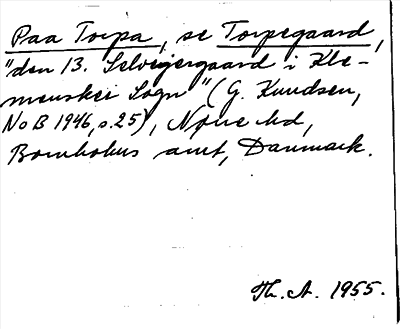 Paa Torpa, se Torpegaard,
"den 13. Selvejergaard i Kle-
menskei Sogn" (G. Knudsen,
NoB 1946, s. 25), Nørre hd,
Bornholms amt, Danmark.
Th. A. 1955.